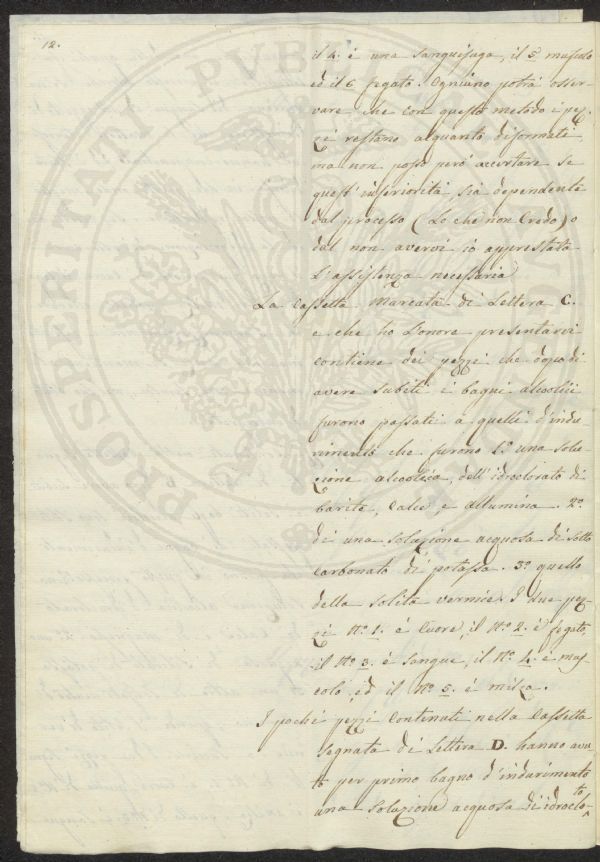 12.
il 4. é una sanguisuga, il 5. muscolo
ed il 6 fegato. Ogniuno potrà osser-
vare che con questo metodo i pez-
zi restano alquanto disformati
ma non posso peró accertare se
quest'inferiorità, sia dependente
dal processo (Lo che non Credo) o
dal non avervi io apprestata
L'assistenza necessaria
La Cassetta Marcata di Lettera C.
e che ho L'onore presentarvi
contiene dei pezzi che dopo di
avere subiti i bagni alcoolici
furono passati a quelli d'indu-
rimento che furono 1.o una solu-
zione alcoolica, dell'idroclorato di
barite, Calce, e allumina. 2.o
di una soluzione acquosa di sotto
carbonato di potassa. 3.o quello
della solita vernice. I due pez-
zi N.o 1. é Cuore, il N.o 2. é fegato,
il N.o 3. é Sangue, il N.o 4. é mus-
colo, ed il N.o 5. é milza.
I pochi pezzi Contenuti nella Cassetta
segnata di Lettera D. hanno avu-
to per primo bagno d'indurimento
una soluzione acquosa di idroclo-
to
PROSPERITATI PVBL